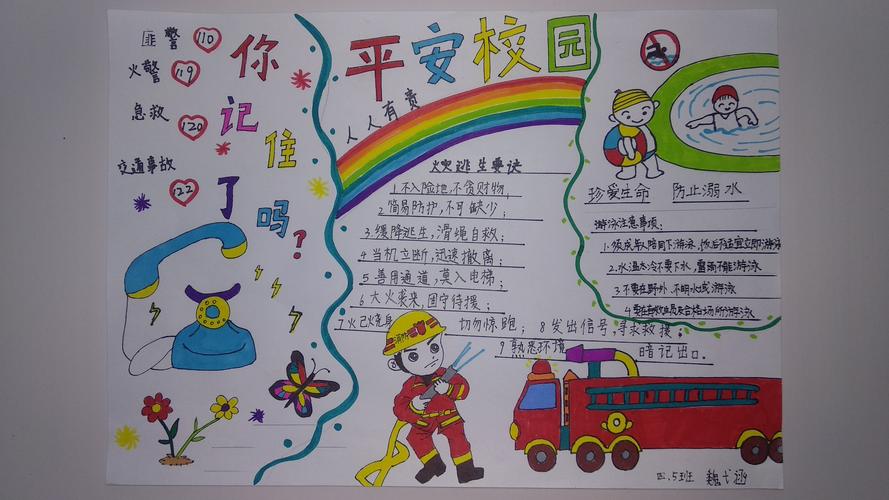 匪警 110
火警 119
急救 120
交通事故 122
你记住了吗?
平安校园
人人有责
火灾逃生要诀
1 不入险地,不贪财物,
2 简易防护,不可缺少;
3 缓降逃生,滑绳自救;
4 当机立断,迅速撤离;
5 善用通道,莫入电梯;
6 大火袭来,固守待援;
7 火已烧身 切勿惊跑; 8 发出信号,寻求救援;
9 熟悉环境 暗记出口。
消防
珍爱生命 防止溺水
游泳注意事项:
1.须成年人陪同下游泳,饭后不宜立即游泳
2.水温太冷不要下水,雷雨不能游泳
3.不要在野外,不明水域游泳
4.要在有救生员及合格场所游泳
四.5班 魏弋涵